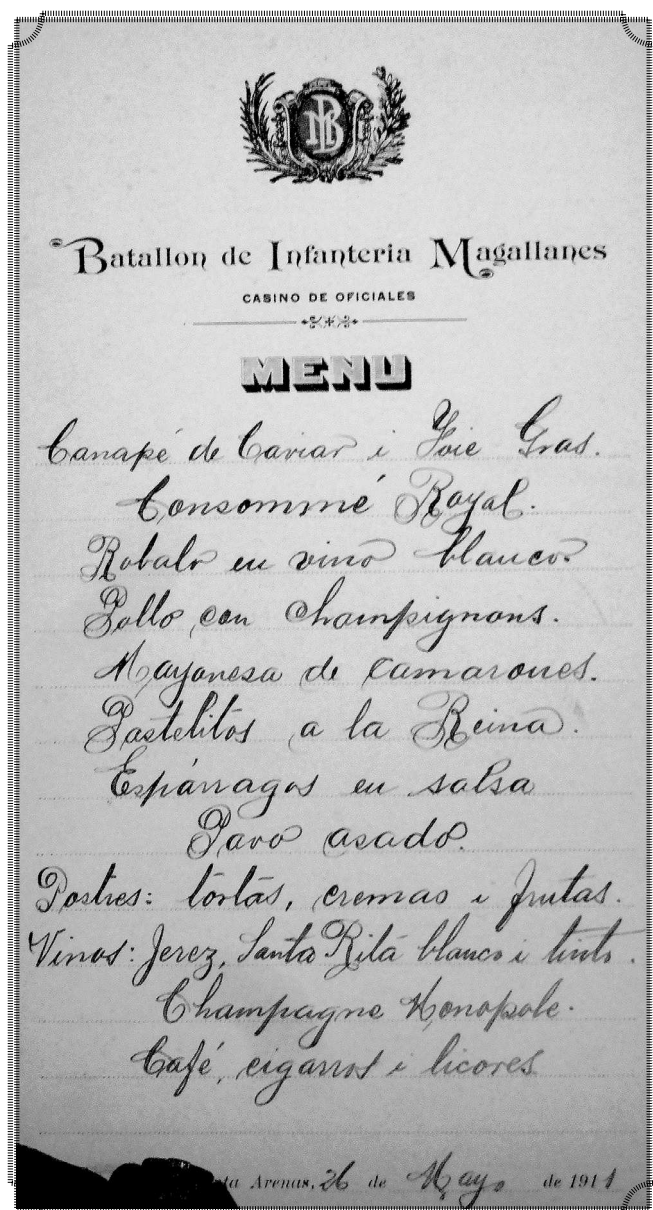 MLB
Batallon de Infanteria Magallanes
CASINO DE OFICIALES
MENU
Canapé de Caviar i Foie Gras.
Consommé Royal.
Robalo en vino blanco.
Pollo con Champignons.
Mayonesa de camarones.
Pastelitos a la Reina.
Espárragos en salsa
Pavo asado.
Postres: tortas, cremas i frutas.
Vinos: Jerez, Santa Rita blanco i tinto.
Champagne Monopole.
Café, cigarros i licores
ta Arenas, 26 de Mayo de 1911